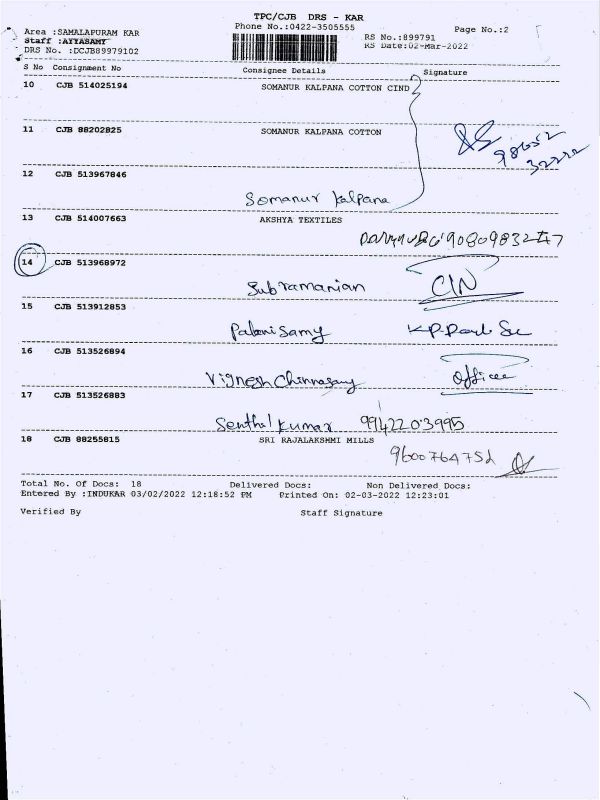 TPC/CJB DRS - KAR
Phone No.:0422-3505555
Page No.:2
Area :SAMALAPURAM KAR
Staff :AYYASAMY
DRS No. :DCJB89979102
RS No.:899791
RS Date:02-Mar-2022
S No Consignment No Consignee Details Signature
10 CJB 514025194 SOMANUR KALPANA COTTON CIND
11 CJB 88202825 SOMANUR KALPANA COTTON
98652
32222
12 CJB 513967846
Somanur Kalpana
13 CJB 514007663 AKSHYA TEXTILES
14 CJB 513968972
Subramanian C/N
15 CJB 513912853
Palanisamy
16 CJB 513526894
Vignesh Chinnasamy Office
17 CJB 513526883
Senthil Kumar 9942203995
18 CJB 88255815 SRI RAJALAKSHMI MILLS
9600764752
Total No. Of Docs: 18 Delivered Docs: Non Delivered Docs:
Entered By :INDUKAR 03/02/2022 12:18:52 PM Printed On: 02-03-2022 12:23:01
Verified By Staff Signature